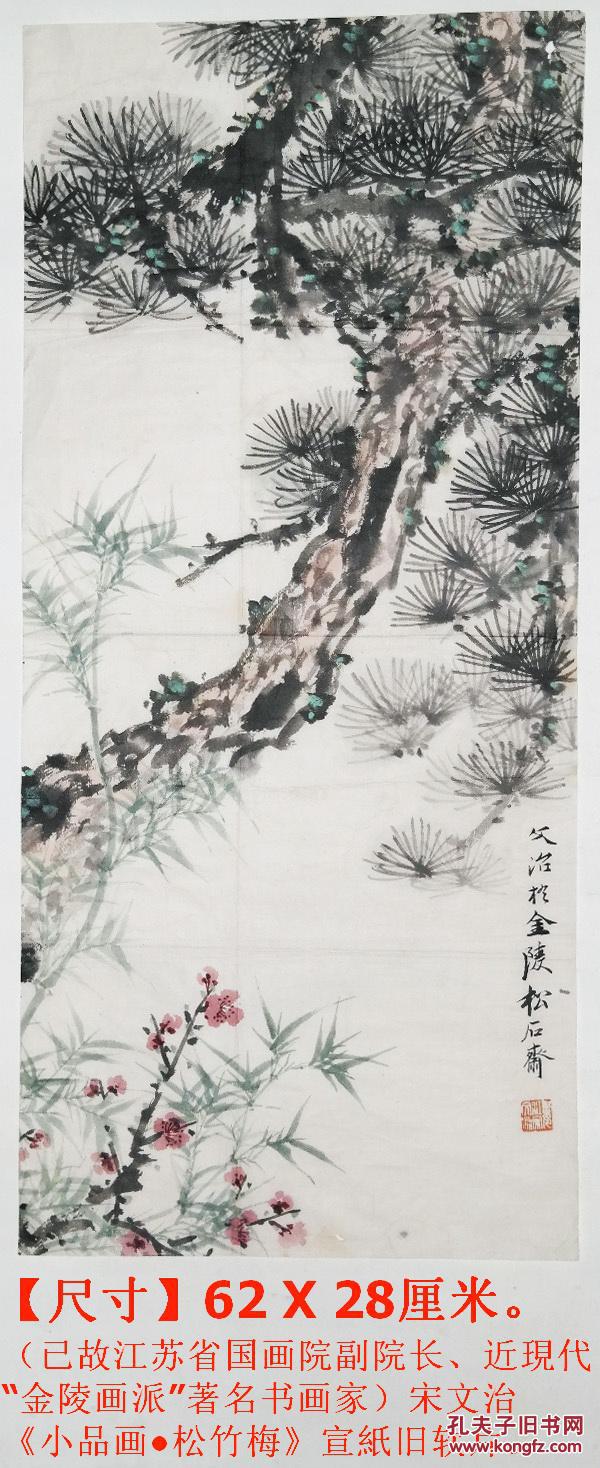 文治於金陵松石齋
【尺寸】62 X 28厘米。
（已故江苏省国画院副院长、近現代
“金陵画派”著名书画家）宋文治
《小品画●松竹梅》宣紙旧软片
孔夫子旧书网
www.kongfz.com